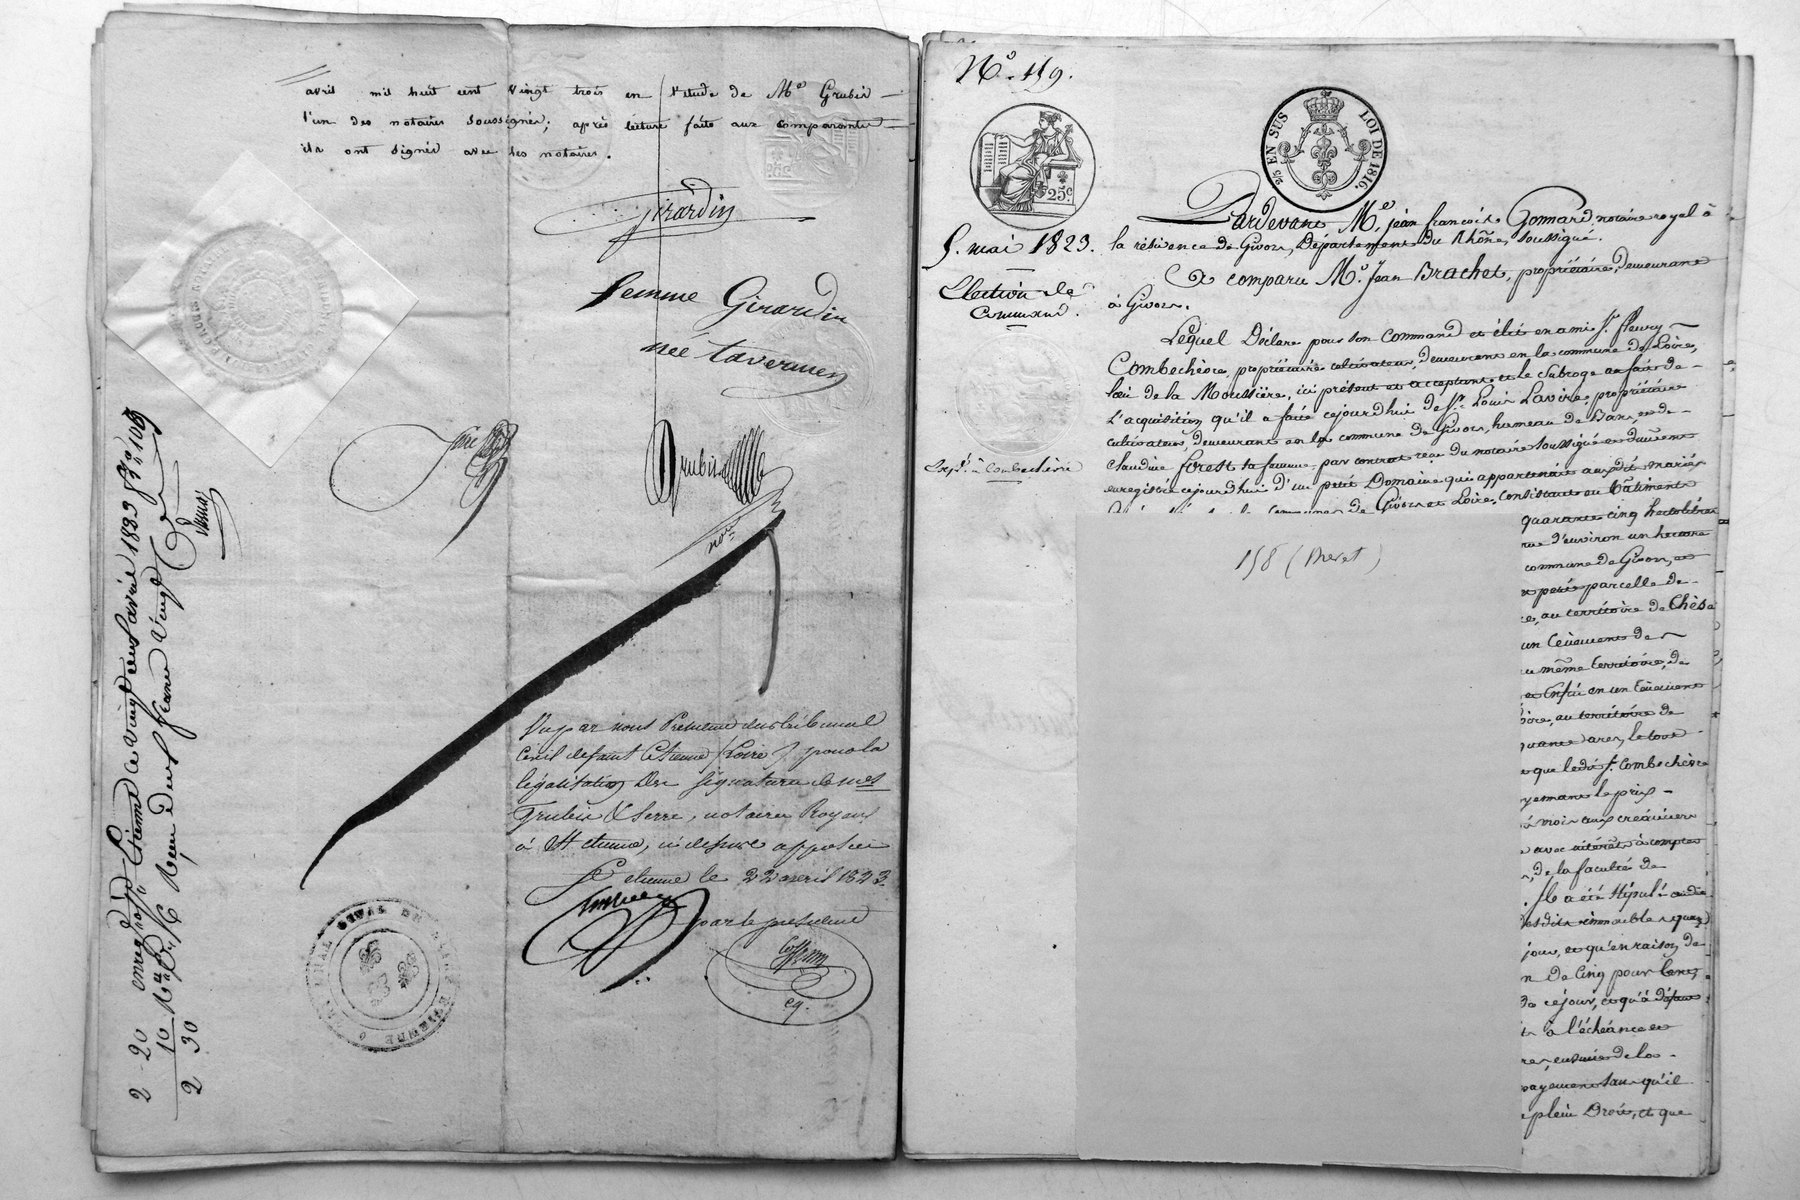 avril mil huit cent vingt trois en l'etude de Me Grubis
l'un des notaires soussignés; après lecture faite aux comparants
ils ont signés avec les notaires.
Girardin
femme Girardin
née tavernier
Grubis
nore
Vu par nous Président du tribunal
Civil de saint Etienne (Loire) pour la
légalisation des signatures de mes
Grubis & Serre, notaires Royaux
à St etienne, ci dessus apposées
St etienne le 22 avril 1823.
par le président
enregistré à St Etienne ce vingt deux avril 1823 fo 109
Reçu deux francs vingt
2 - 20
10
2 30
TRIBUNAL CIVIL DE ST ETIENNE
No. 159.
25c
2/5 EN SUS LOI DE 1816.
5. mai 1823.
Election de
Command.
Expon. à Combechèvre
Pardevant Me. jean françois Gonnard notaire royal à
la résidence de Givors, Département du Rhône, soussigné.
A comparu Mr. Jean Brachet, propriétaire, demeurant
à Givors.
Lequel Déclare pour son Command et élit en ami Sr. fleury
Combechèvre, propriétaire cultivateur, demeurant en la commune de Loire,
lieu de la Moussière, ici présent et acceptant et le subroge en fait de
L'acquisition qu'il a faite cejourd'hui de Sr. Louis Lavire, propriétaire
cultivateur, demeurant en la commune de Givors, hameau de Bans, et de
claudine forest sa femme par contrat reçu du notaire soussigné et dûment
enregistré cejourd'hui d'un petit Domaine qui appartenait auxdits mariés
de Givors et Loire, consistant en bâtiments
158 (Meret)
quarante cinq hectolitres
rue d'environ un hectare
commune de Givors, et
petite parcelle de
, au territoire de Chèse
un tènement de
même territoire, de
et Enfin en un tènement
oire, au territoire de
quante ares, le tout
que ledit Sr. Combechèvre
yemant le prix
à mois aux créanciers
avec intérêts à compter
, de la faculté de
. Il a été stipulé
lesdits immeubles
jour, et qu'en raison de
n de cinq pour cent,
de ce jour, et qu'à défaut
t à l'échéance et
res, ensuite de la
payement sans qu'il
plein Droit, et que